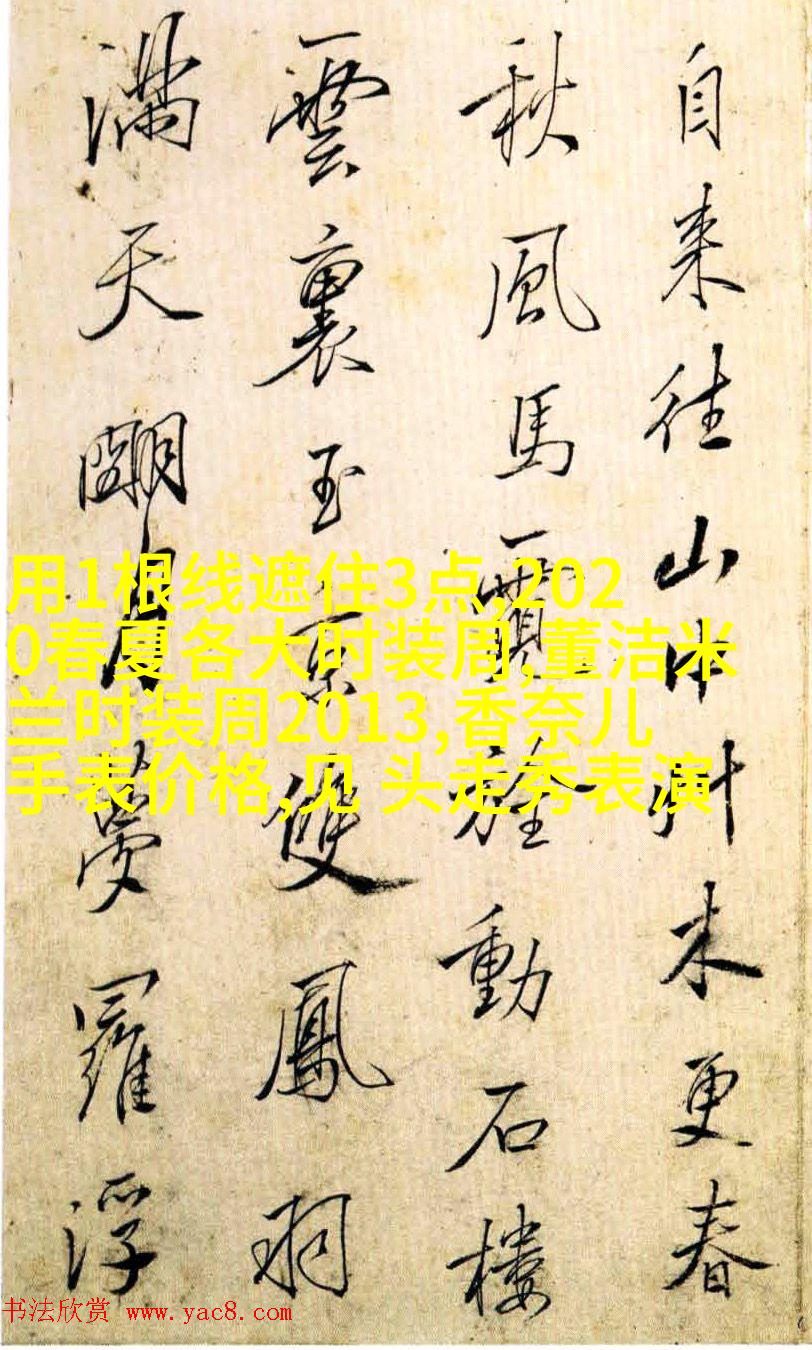 自来往山中艸木更春
秋風馬旌動石樓
雲裏玉京雙鳳
滿天月夢羅浮
用1根线遮住3点,202
0春夏各大时装周,董洁米
兰时装周2013,香奈儿
手表价格,见 头走秀表演
书法欣赏 www.yac8.com